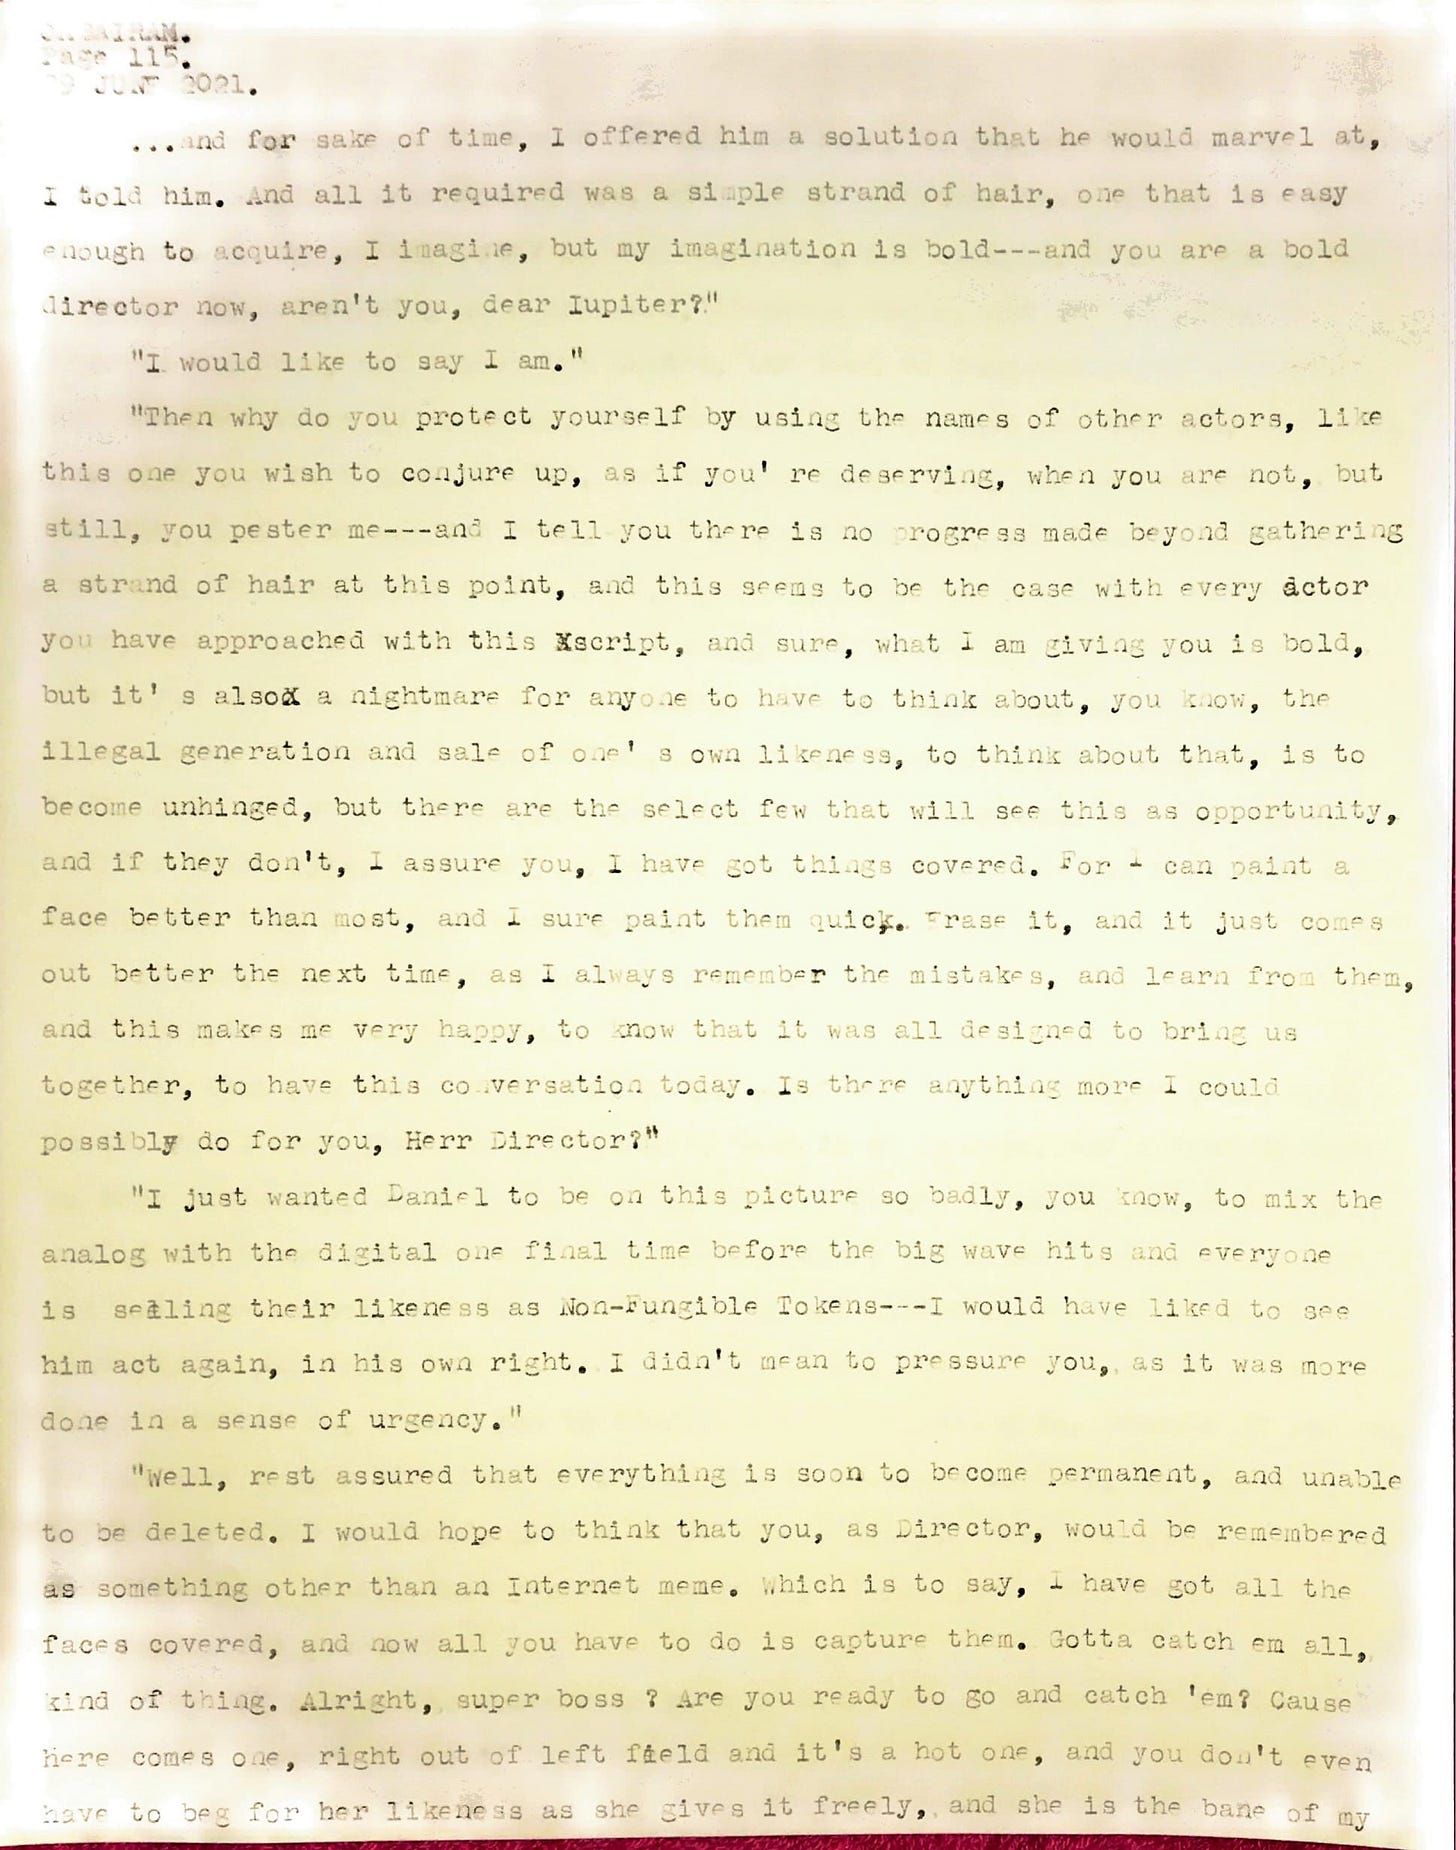 Page 115.
JUNE 2021.
...and for sake of time, I offered him a solution that he would marvel at,
I told him. And all it required was a simple strand of hair, one that is easy
enough to acquire, I imagine, but my imagination is bold---and you are a bold
director now, aren't you, dear Iupiter?"
"I would like to say I am."
"Then why do you protect yourself by using the names of other actors, like
this one you wish to conjure up, as if you' re deserving, when you are not, but
still, you pester me---and I tell you there is no progress made beyond gathering
a strand of hair at this point, and this seems to be the case with every actor
you have approached with this Xscript, and sure, what I am giving you is bold,
but it' s alsox a nightmare for anyone to have to think about, you know, the
illegal generation and sale of one' s own likeness, to think about that, is to
become unhinged, but there are the select few that will see this as opportunity,
and if they don't, I assure you, I have got things covered. For I can paint a
face better than most, and I sure paint them quick. Erase it, and it just comes
out better the next time, as I always remember the mistakes, and learn from them,
and this makes me very happy, to know that it was all designed to bring us
together, to have this conversation today. Is there anything more I could
possibly do for you, Herr Director?"
"I just wanted Daniel to be on this picture so badly, you know, to mix the
analog with the digital one final time before the big wave hits and everyone
is selling their likeness as Non-Fungible Tokens---I would have liked to see
him act again, in his own right. I didn't mean to pressure you, as it was more
done in a sense of urgency."
"Well, rest assured that everything is soon to become permanent, and unable
to be deleted. I would hope to think that you, as Director, would be remembered
as something other than an Internet meme. Which is to say, I have got all the
faces covered, and now all you have to do is capture them. Gotta catch em all,
kind of thing. Alright, super boss ? Are you ready to go and catch 'em? Cause
here comes one, right out of left field and it's a hot one, and you don't even
have to beg for her likeness as she gives it freely, and she is the bane of my